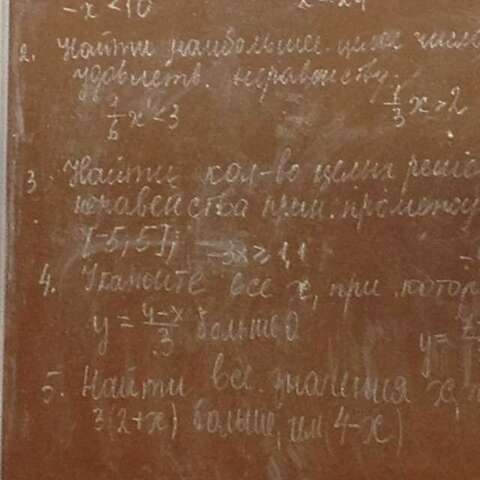 -x < 10
2. Найти наибольшее целое число
удовлетв. неравенству.
x < 3     1/3 x > 2
3 Найти кол-во целых реше
неравенства прин. промежу
[-5; 5]; -3x ≥ 1,1
4. Укажите все x, при котор
y = (4-x)/3 больше 0     y =
5. Найти все значения x,
3(2+x) больше, чем (4-x)